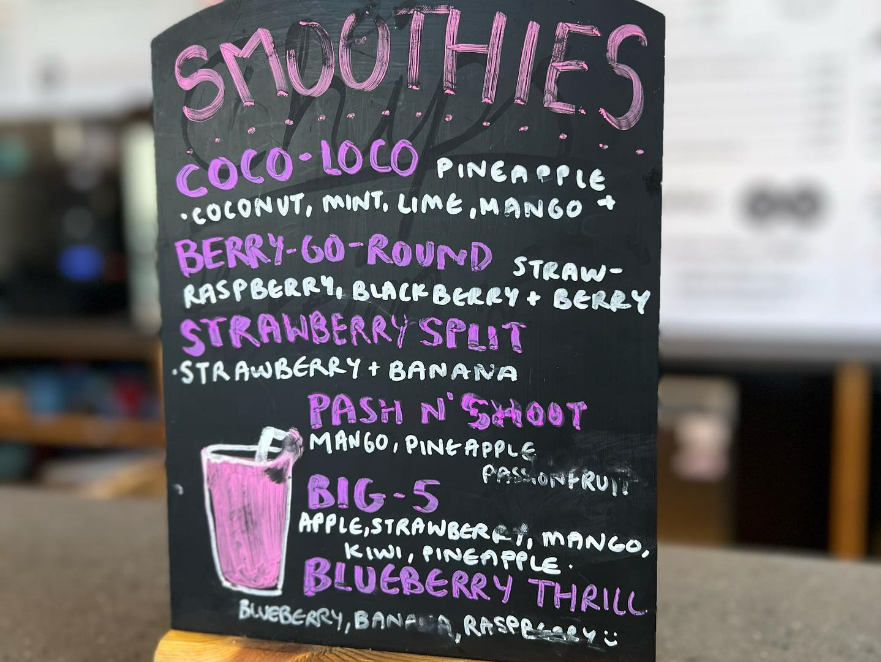 SMOOTHIES
COCO-LOCO PINEAPPLE
·COCONUT, MINT, LIME, MANGO +
BERRY-GO-ROUND STRAW-
RASPBERRY, BLACKBERRY + BERRY
STRAWBERRY SPLIT
·STRAWBERRY + BANANA
PASH N' SHOOT
MANGO, PINEAPPLE
PASSIONFRUIT
BIG-5
APPLE, STRAWBERRY, MANGO,
KIWI, PINEAPPLE.
BLUEBERRY THRILL
BLUEBERRY, BANANA, RASPBERRY